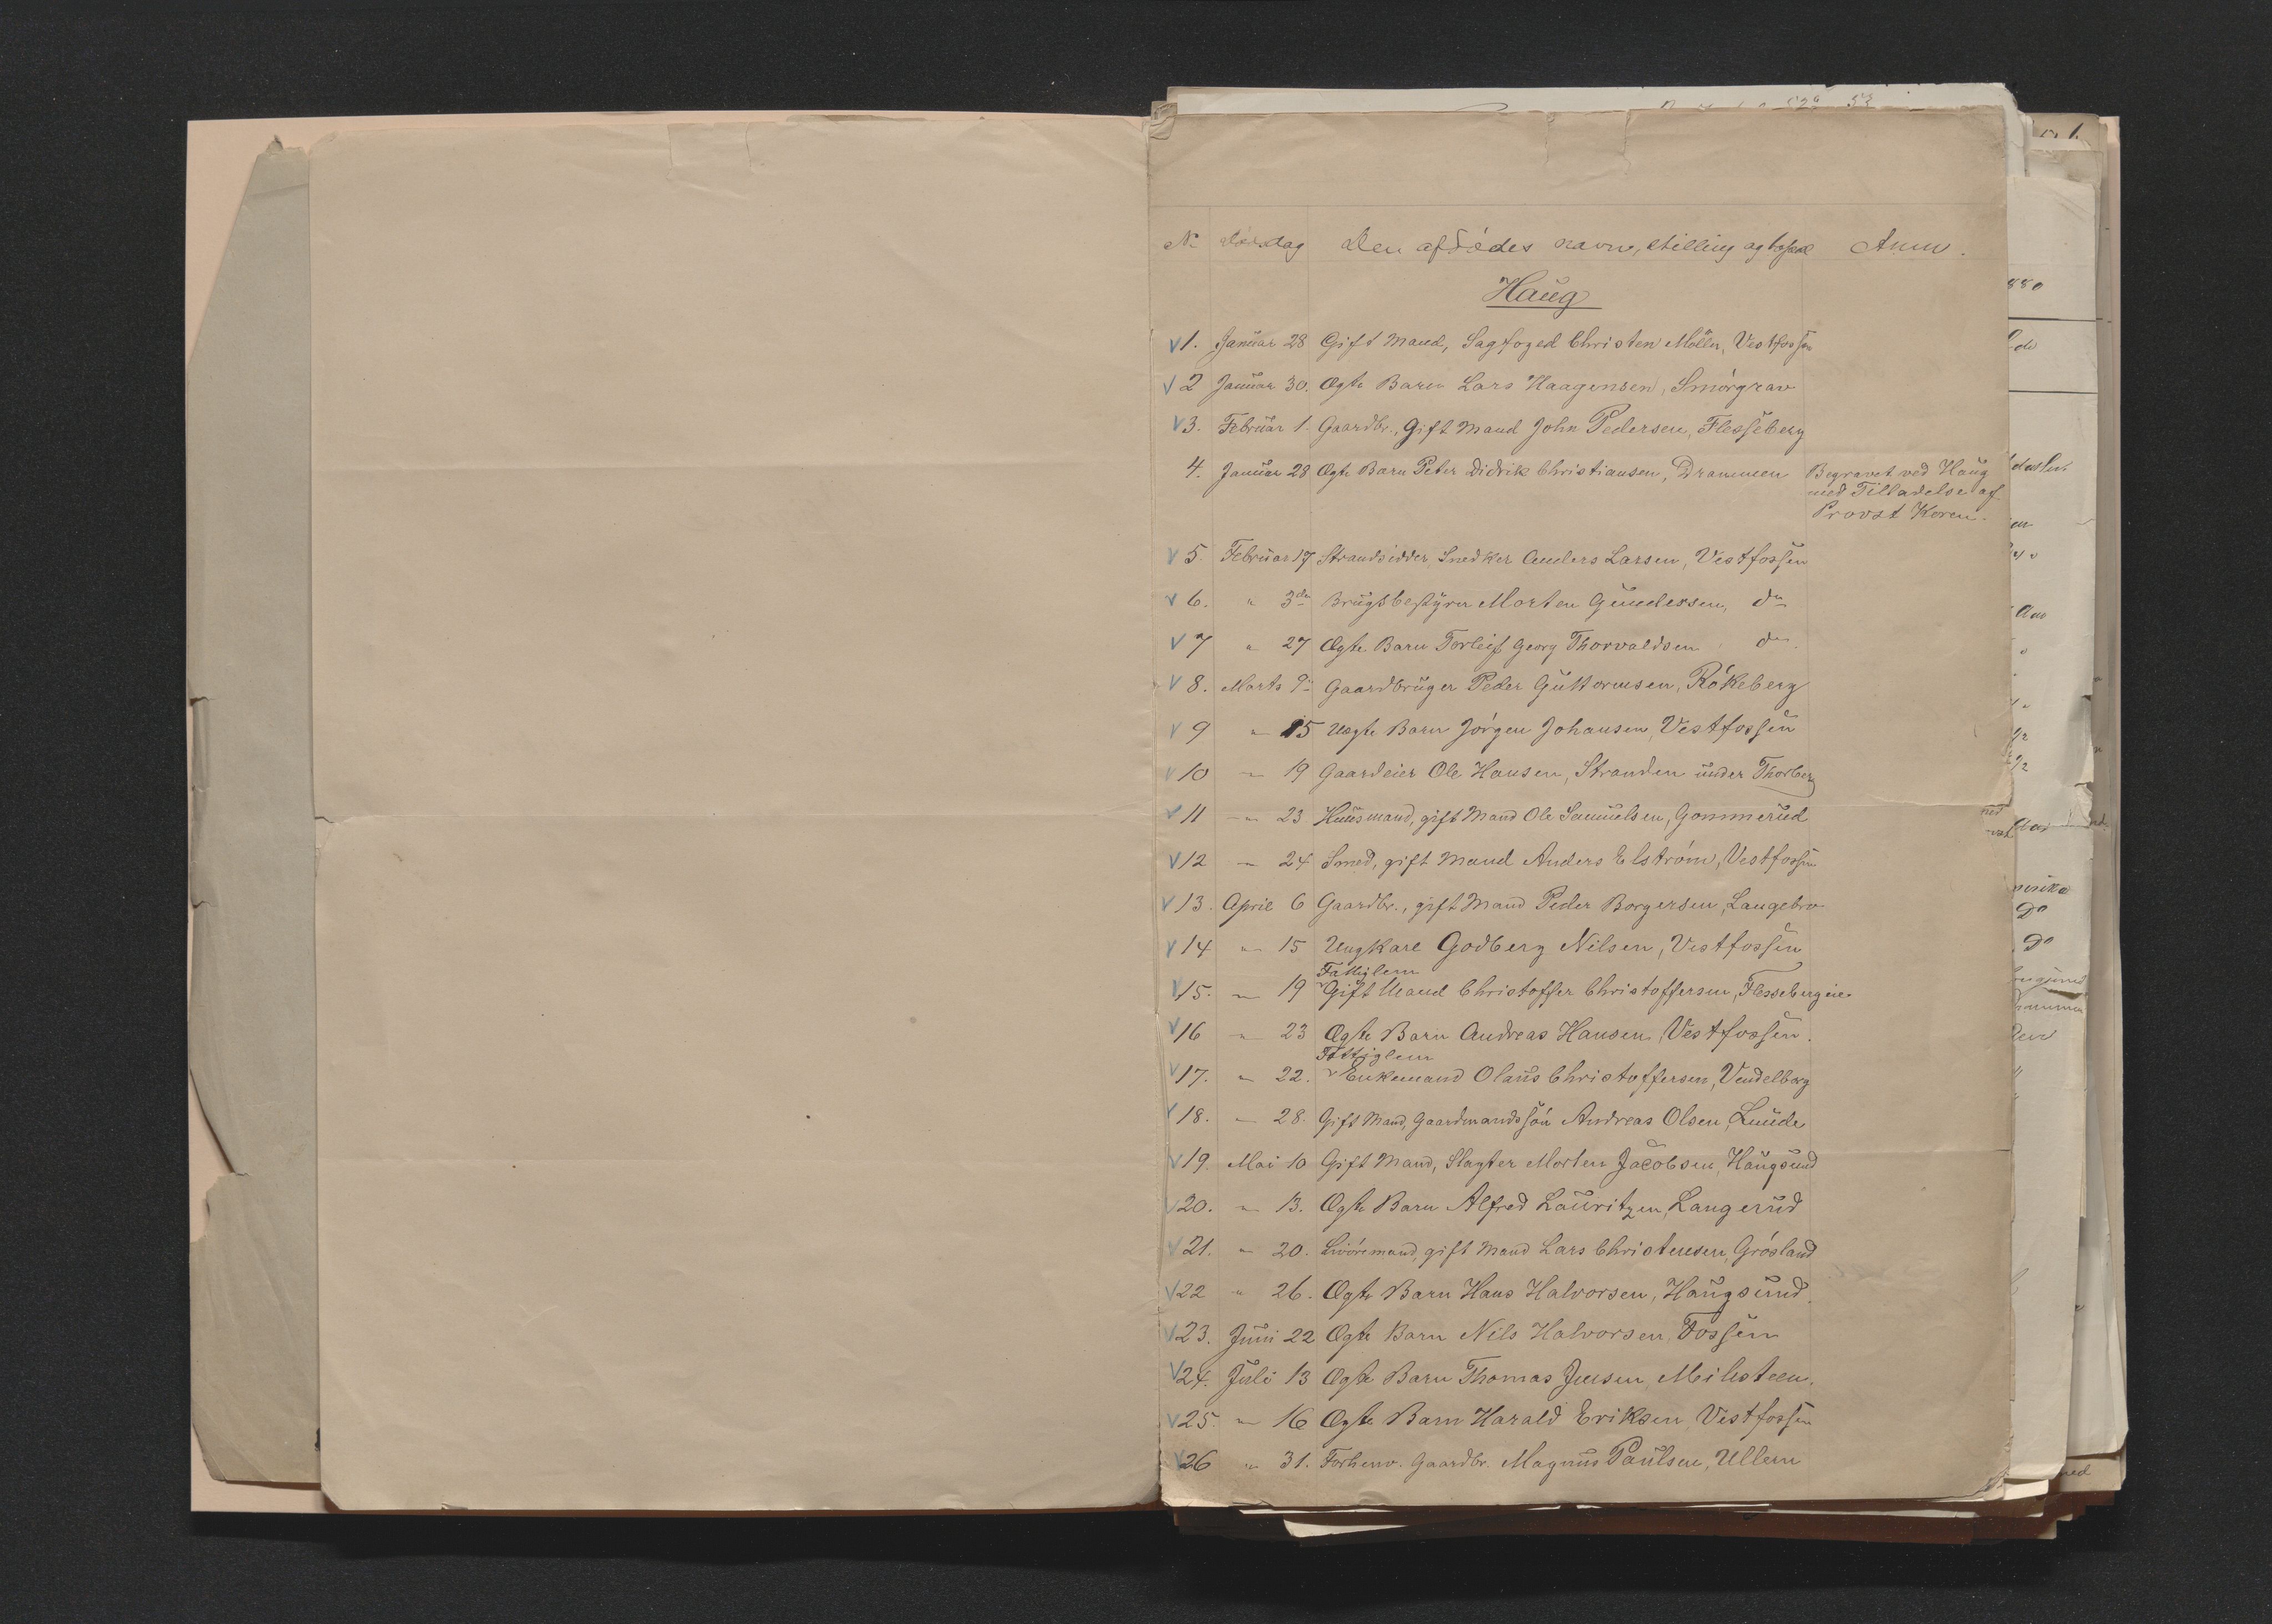 No Dödsdag Den afdödes navn, stilling og bopæl Anm.
Haug
1. Januar 28 Gift Mand, Sagfoged Christen Möller, Vestfossen
2 Januar 30. Ægte Barn Lars Haagensen, Smörgrav
3. Februar 1. Gaardbr., Gift Mand John Pedersen, Flesseberg
4. Januar 28 Ægte Barn Peter Didrik Christiansen, Drammen Begravet ved Haug
med Tilladelse af
Provst Koren.
5. Februar 17 Strandsidder, Snedker Anders Larsen, Vestfossen
6. " 3die Brugsbestyrer Morten Gundersen, do
7 " 27 Ægte Barn Torleif Georg Thorvaldsen, do
8. Marts 9 Gaardbruger Peder Guttormsen, Rökeberg
9 " 15 Uægte Barn Jörgen Johansen, Vestfossen
10 " 19 Gaardeier Ole Hansen, Stranden under Thorberg
11 " 23 Huusmand, gift Mand Ole Samuelsen, Gommerud
12 " 24 Smed, gift Mand Anders Elström, Vestfossen
13. April 6 Gaardbr., gift Mand Peder Borgersen, Langebro
14 " 15 Ungkarl Godberg Nilsen, Vestfossen
Fattiglem
15. " 19 Gift Mand Christoffer Christoffersen, Flessebergeie
16 " 23 Ægte Barn Andreas Hansen, Vestfossen.
Fattiglem
17. " 22. Enkemand Olaus Christoffersen, Vendelborg
18. " 28. Gift Mand, Gaardmandssön Andreas Olsen, Lunde
19. Mai 10 Gift Mand, Slagter Morten Jacobsen, Haugsund
20. " 13. Ægte Barn Alfred Lauritzen, Langerud
21. " 20. Livöremand, gift Mand Lars Christensen, Grösland
22 " 26. Ægte Barn Hans Halvorsen, Haugsund.
23. Juni 22 Ægte Barn Nils Halvorsen, Fossen
24. Juli 13 Ægte Barn Thomas Jensen, Milesteen.
25. " 16 Ægte Barn Harald Eriksen, Vestfossen
26 " 31. Forhenv. Gaardbr. Magnus Paulsen, Ullern